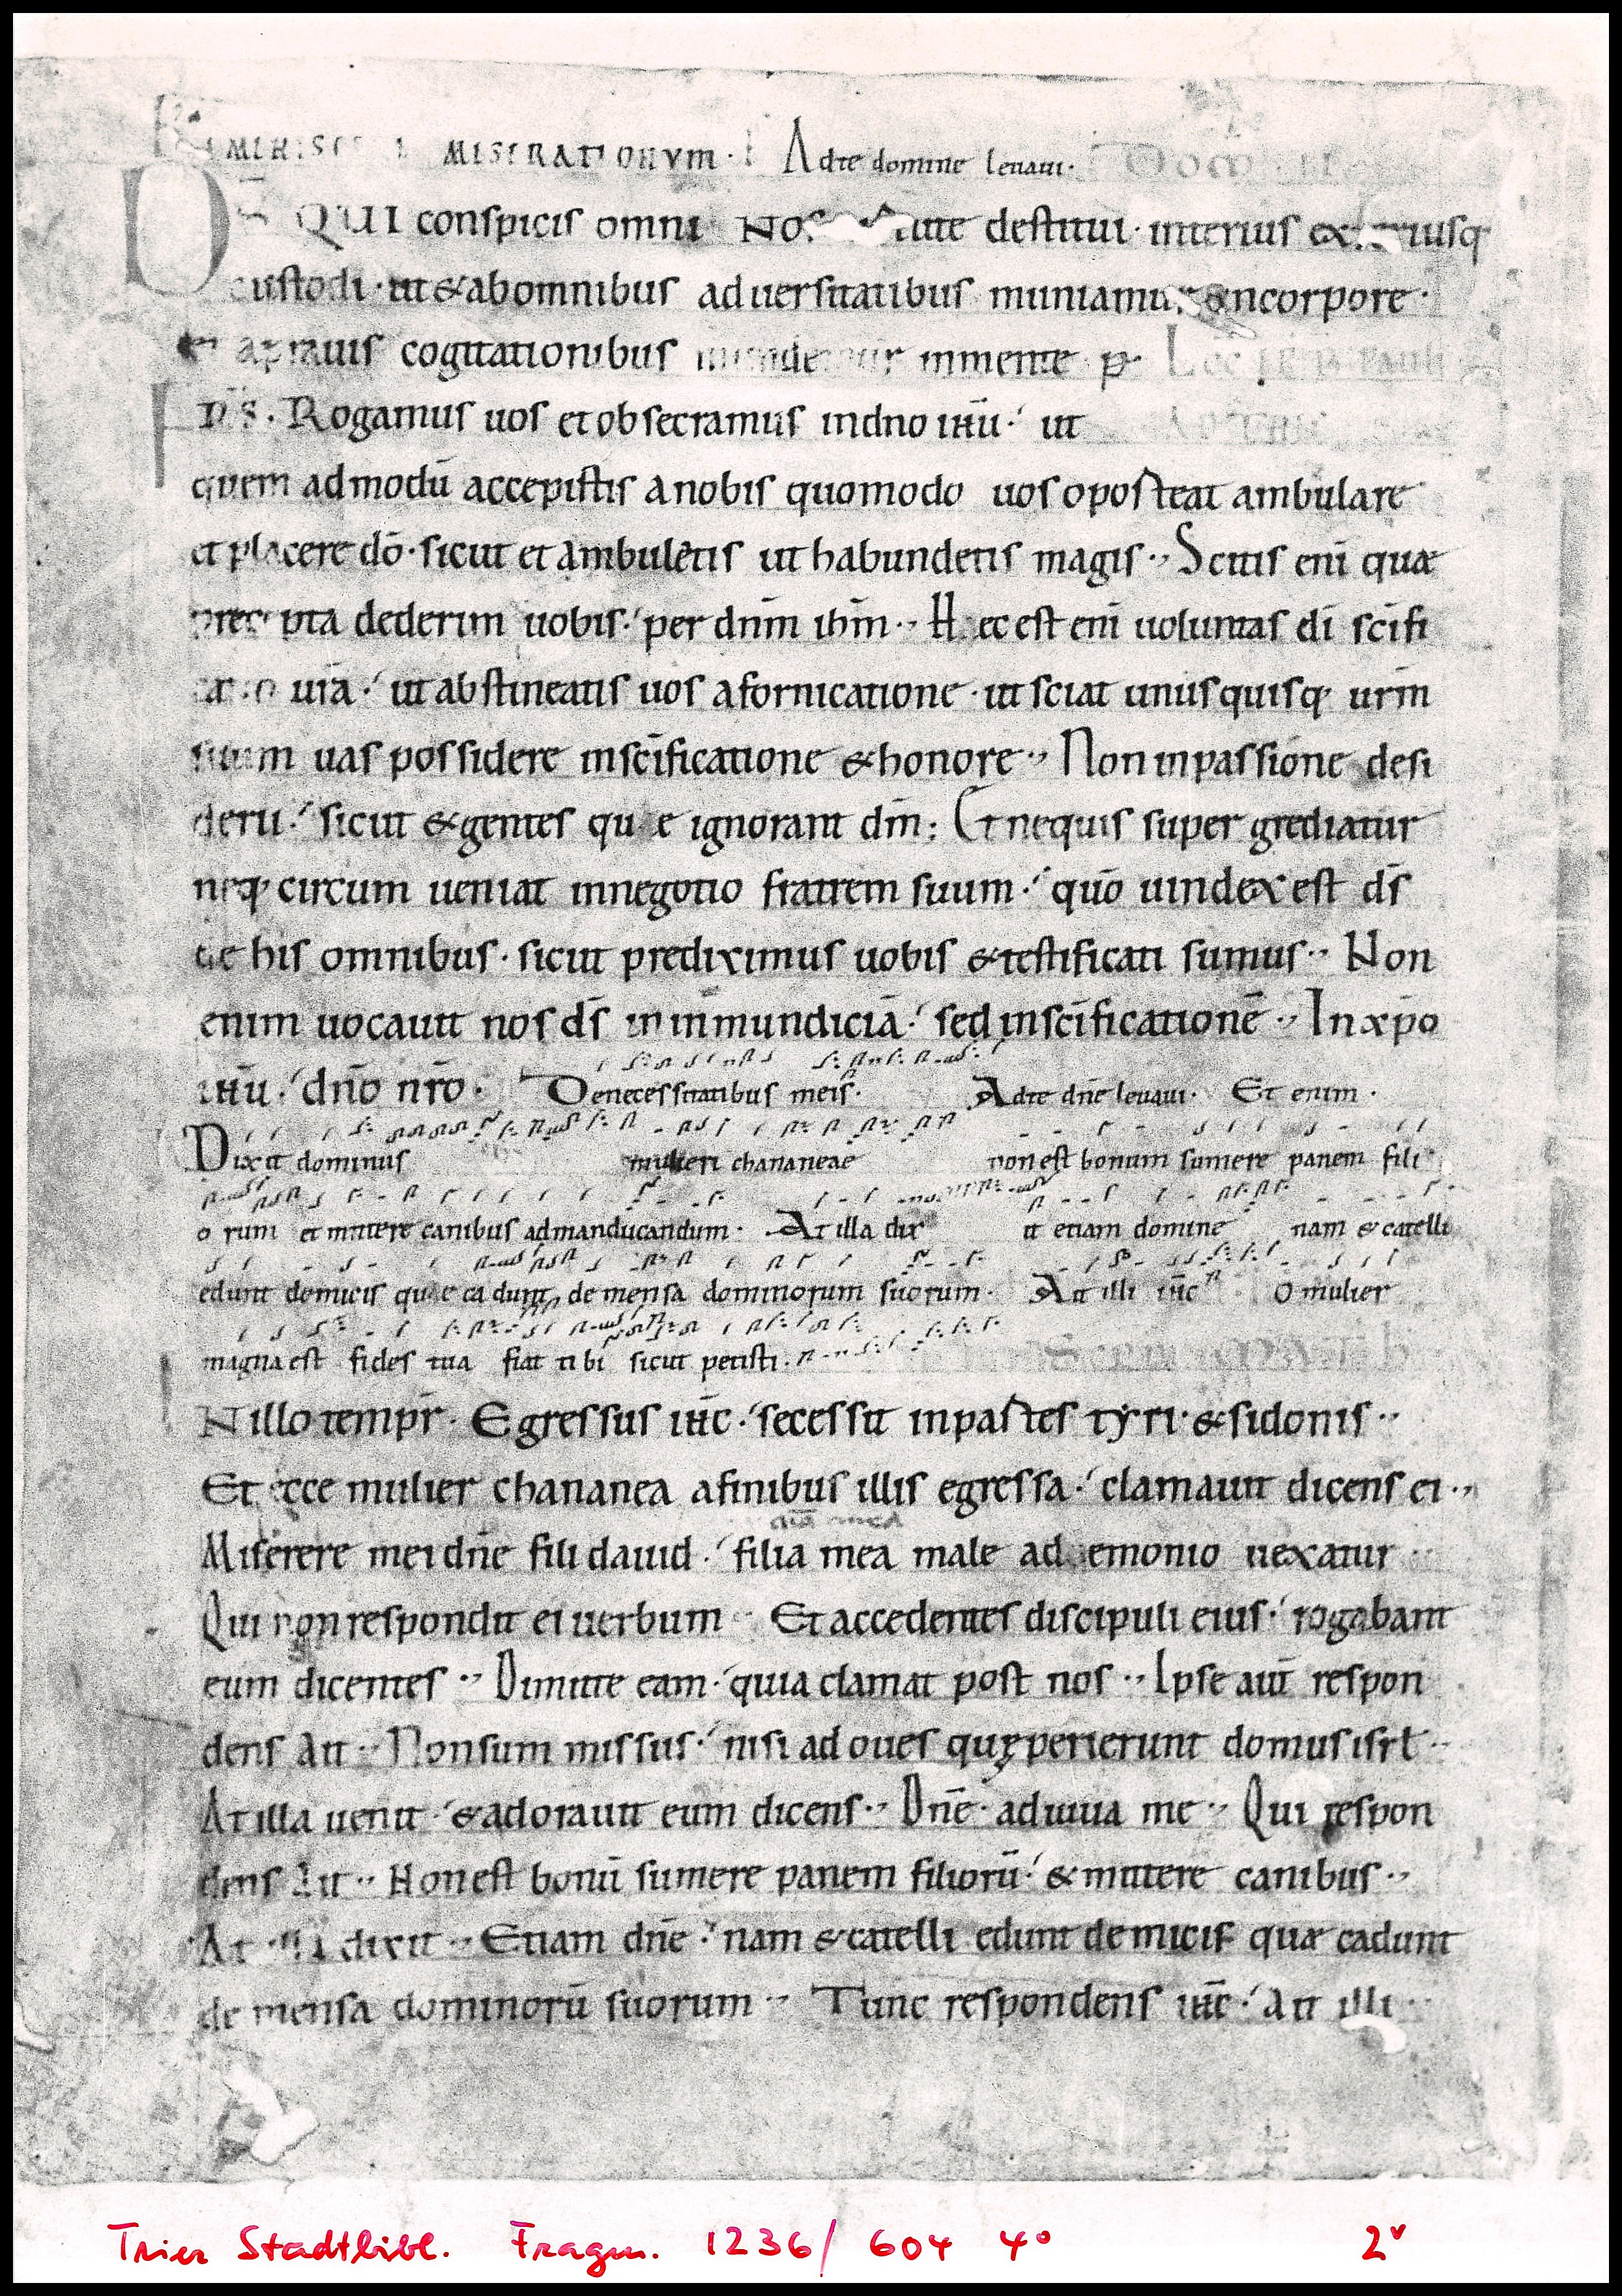 MISERATIONVM · Ad te domine leuaui ·
QUI conspicis omni destitui · interius
custodi · ut & ab omnibus aduersitatibus muniamur in corpore ·
cogitationibus in mente p̄
Rogamus uos et obsecramus in dño ihū · ut
quem admodū accepistis a nobis quomodo uos oporteat ambulare
et placere dō · sicut et ambuletis ut habundetis magis · Scitis enī quæ
dederim uobis · per dñm ihm · Hec est enī uoluntas di scifi
uīa · ut abstineatis uos a fornicatione · ut sciat unusquisq; urm̄
suum uas possidere in scīficatione & honore · Non in passione desi
derii · sicut & gentes que ignorant dm̄ : Et ne quis super grediatur
neq; circum ueniat in negotio fratrem suum · quō uindex est ds̄
de his omnibus · sicut prediximus uobis & testificati sumus · Non
enim uocauit nos ds̄ in inmundiciā · sed in scīficationē · In xp̄o
ihū · dño nrō · De necessitatibus meis · Ad te dñe leuaui · Et enim ·
Dixit dominus mulieri chananeae non est bonum sumere panem fili
orum et mittere canibus ad manducandum · At illa dix it etiam domine nam & catelli
edunt de micis quae cadunt de mensa dominorum suorum · Ait illi ihc̄ O mulier
magna est fides tua fiat tibi sicut petisti ·
N illo tempr̄ · Egressus ihc̄ · secessit in partes tyri · & sidonis ·
Et ecce mulier chananea a finibus illis egressa · clamauit dicens ei ·
Miserere mei dñe fili dauid · filia mea male a demonio uexatur
Qui non respondit ei uerbum Et accedentes discipuli eius · rogabant
eum dicentes · Dimitte eam · quia clamat post nos · Ipse aut̄ respon
dens ait · Non sum missus · nisi ad oues quę perierunt domus isrl ·
At illa uenit · & adorauit eum dicens · Dñe · adiuua me · Qui respon
dens ait · Non est bonū sumere panem filiorū · & mittere canibus ·
At illa dixit · Etiam dñe · nam & catelli edunt de micis quæ cadunt
de mensa dominorū suorum · Tunc respondens ihc̄ · ait illi
Trier Stadtbibl. Fragm. 1236/ 604 4° 2ᵛ